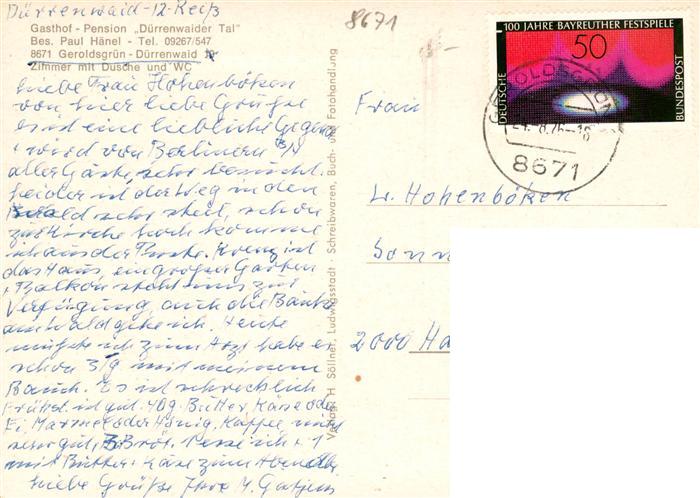 Dürrenwaid-12-Reiß
Gasthof - Pension „Dürrenwaider Tal"
Bes. Paul Hänel - Tel. 09267/547
8671 Geroldsgrün - Dürrenwaid
Zimmer mit Dusche und WC
Liebe Frau Hohenböken
von hier liebe Grüße
es ist eine liebliche Gegend
wird von Berlinern
aller Gäste, sehr besucht.
Leider ist der Weg in den
Wald sehr steil, schon
zur Kirche hoch komme
ich aus der Puste.
das Haus, ein großer Garten
+ Balkon steht uns zur
Verfügung, auch die Bänke
am Wald gehe ich. Heute
mußte ich zum Arzt habe es
schon 3 Tg mit meinem
Bauch. Es ist schrecklich
Frühst. ist gut. 40g. Butter, Käse oder
Ei, Marmel oder Hönig, Kaffee,
sehr gut, Brot. esse ich + 1
mit Butter + Käse zum Abend
Liebe Grüße Ihre M.
Verlag: H. Söllner, Ludwigsstadt - Schreibwaren, Buch- und Fotohandlung
8671
100 JAHRE BAYREUTHER FESTSPIELE
50
DEUTSCHE
BUNDESPOST
8671
Frau
Hohenböken
Sonn
2000 Ha